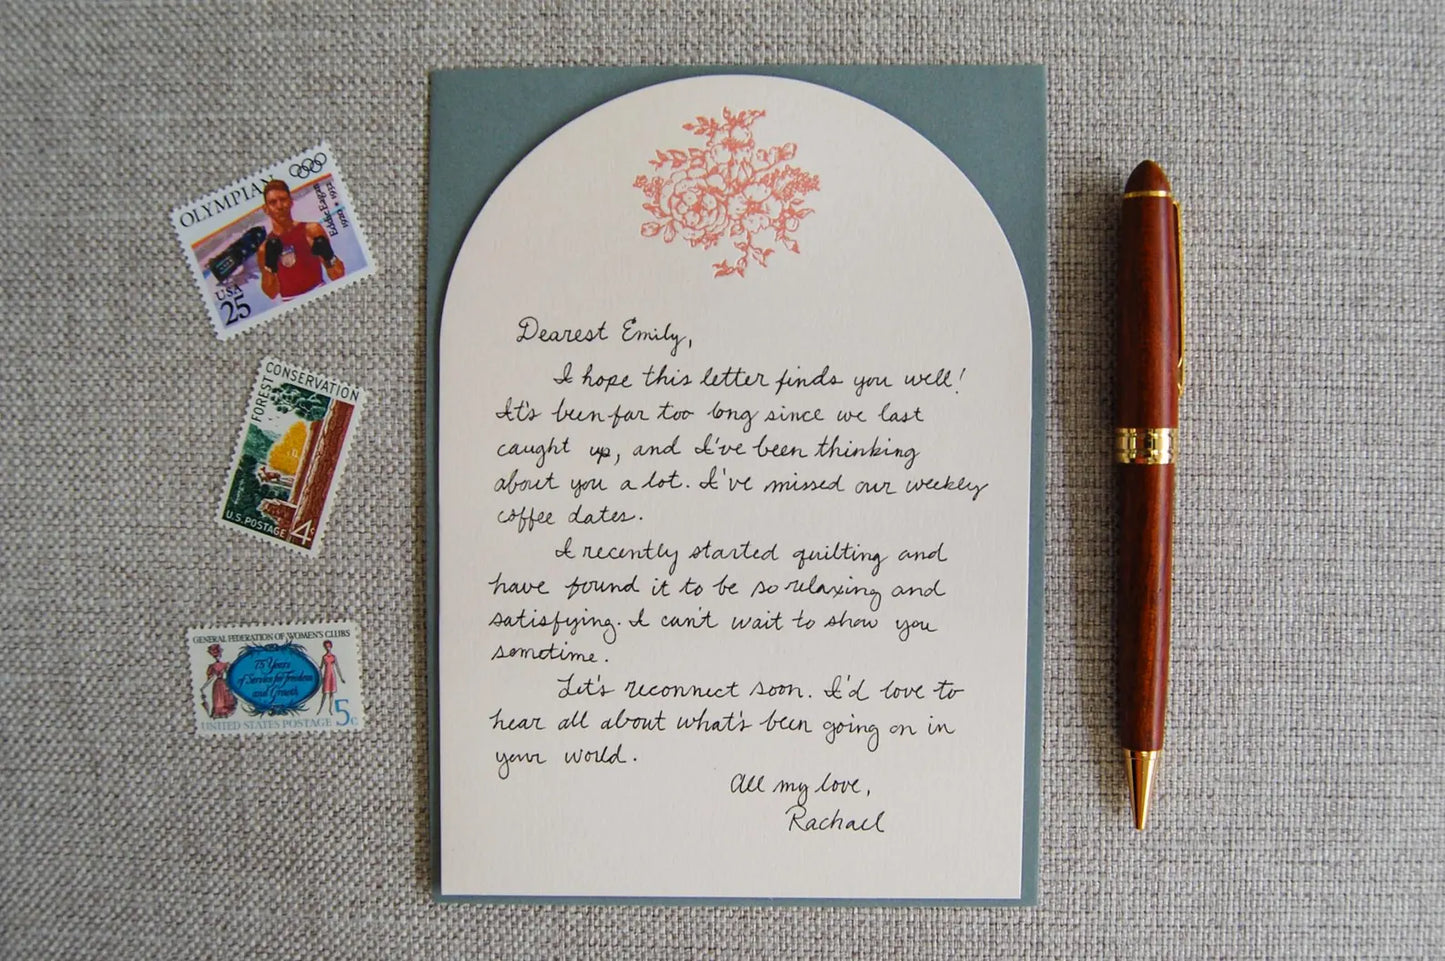 OLYMPIAN
Eddie Eagan
1920 • 1932
USA
25
FOREST CONSERVATION
U.S. POSTAGE 4¢
GENERAL FEDERATION OF WOMEN'S CLUBS
75 Years
of Service for Freedom
and Growth
UNITED STATES POSTAGE 5c
Dearest Emily,
I hope this letter finds you well!
It's been far too long since we last
caught up, and I've been thinking
about you a lot. I've missed our weekly
coffee dates.
I recently started quilting and
have found it to be so relaxing and
satisfying. I can't wait to show you
sometime.
Let's reconnect soon. I'd love to
hear all about what's been going on in
your world.
All my love,
Rachael